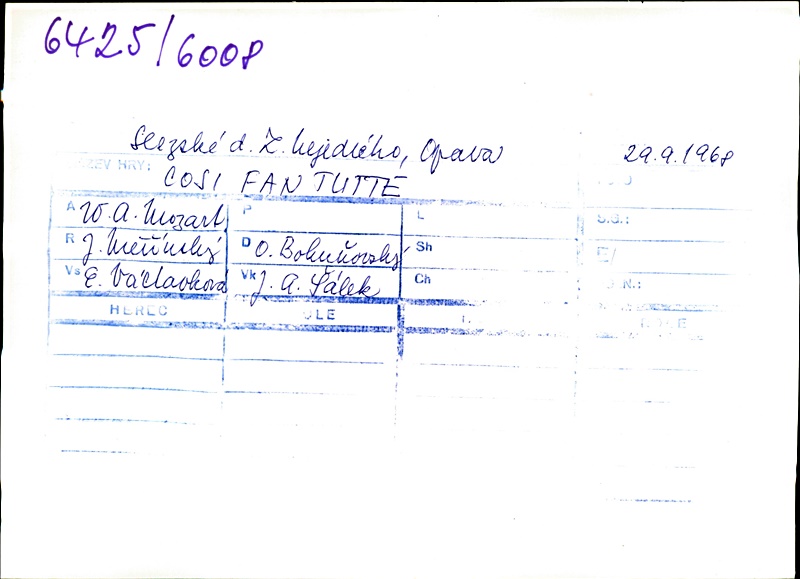 6425/6008
Slezské d. Z. Nejedlého, Opava 29.9.1968
ZEV HRY:
COSI FAN TUTTE
A W. A. Mozart P L S.G.:
R J. Měřínský D O. Bohuňovský Sh E/
Vs E. Václavková Vk J. A. Šálek Ch N.:
HEREC ULE